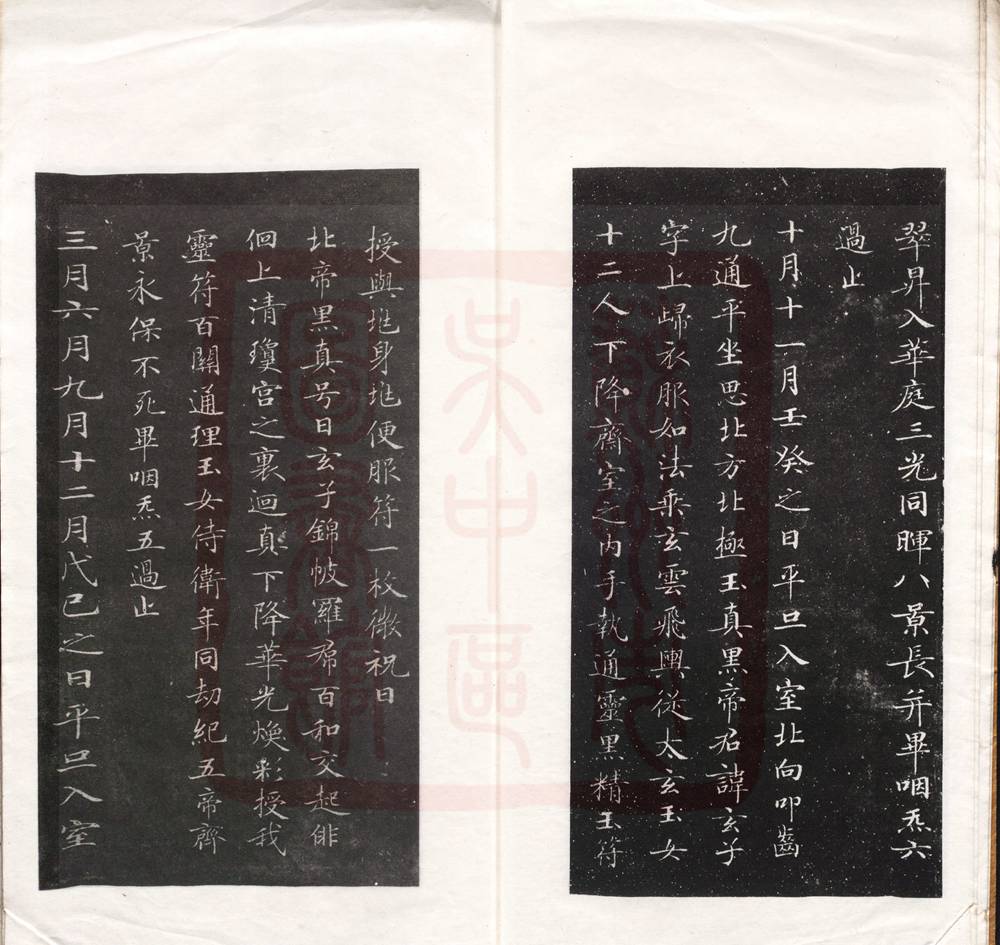 翠昇入華庭三光同暉八景長并畢咽炁六
過止
十月十一月壬癸之日平旦入室北向叩齒
九通平坐思北方北極玉真黑帝君諱玄子
字上歸衣服如法乘玄雲飛輿從太玄玉女
十二人下降齋室之內手執通靈黑精玉符
授與兆身兆便服符一枚微祝曰
北帝黑真号曰玄子錦帔羅帬百和交起俳
佪上清瓊宫之裏迴真下降華光煥彩授我
靈符百關通理玉女侍衛年同劫紀五帝齊
景永保不死畢咽炁五過止
三月六月九月十二月戊己之日平旦入室
吳中區
圖書館